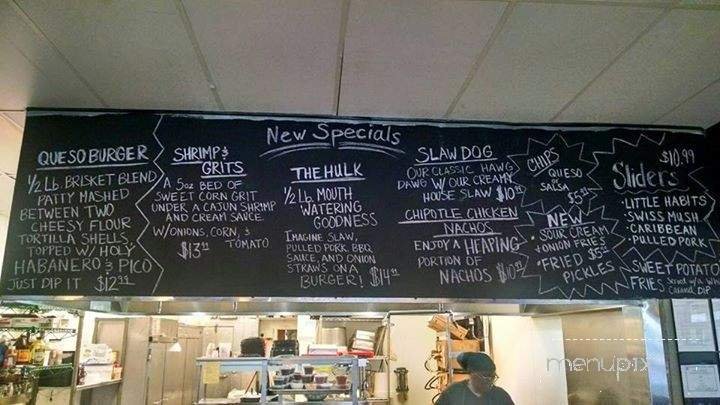 New Specials
QUESO BURGER
1/2 Lb. BRISKET BLEND
PATTY MASHED
BETWEEN TWO
CHEESY FLOUR
TORTILLA SHELLS,
TOPPED W/ HOLY
HABANERO & PICO
JUST DIP IT
SHRIMP &
GRITS
A 5oz BED OF
SWEET CORN GRIT
UNDER A CAJUN SHRIMP
AND CREAM SAUCE
W/ONIONS, CORN, &
TOMATO
THE HULK
1/2 Lb. MOUTH
WATERING
GOODNESS
IMAGINE SLAW,
PULLED PORK, BBQ
SAUCE, AND ONION
STRAWS ON A
BURGER!
SLAW DOG
OUR CLASSIC HAWG
DAWG W/ OUR CREAMY
HOUSE SLAW
CHIPOTLE CHICKEN
NACHOS
ENJOY A HEAPING
PORTION OF
NACHOS
CHIPS
&
QUESO
or
SALSA
NEW
• SOUR CREAM &
ONION FRIES
• FRIED
PICKLES
$10.99
Sliders
• LITTLE HABITS
• SWISS MUSH
• CARIBBEAN
• PULLED PORK
SWEET POTATO
FRIES Served w/ a
Caramel DIP
menupix